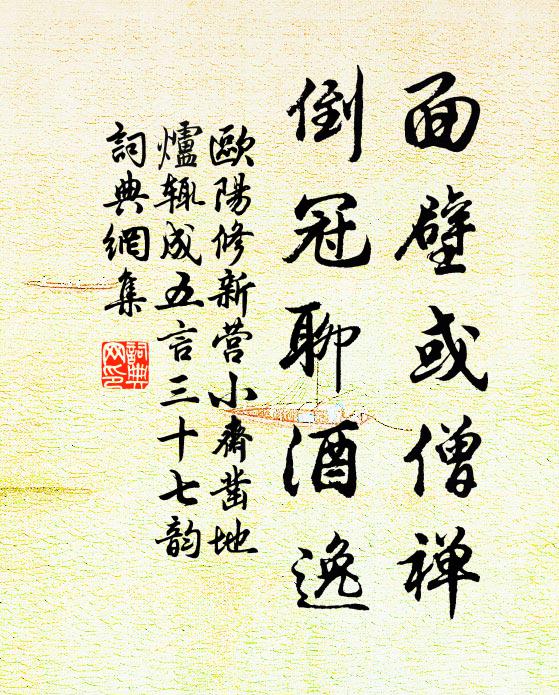 面壁或僧禅
倒冠聊酒逸
歐陽修新营小齋凿地
爐辄成五言三十七韵
詞典網集
詞典
网印